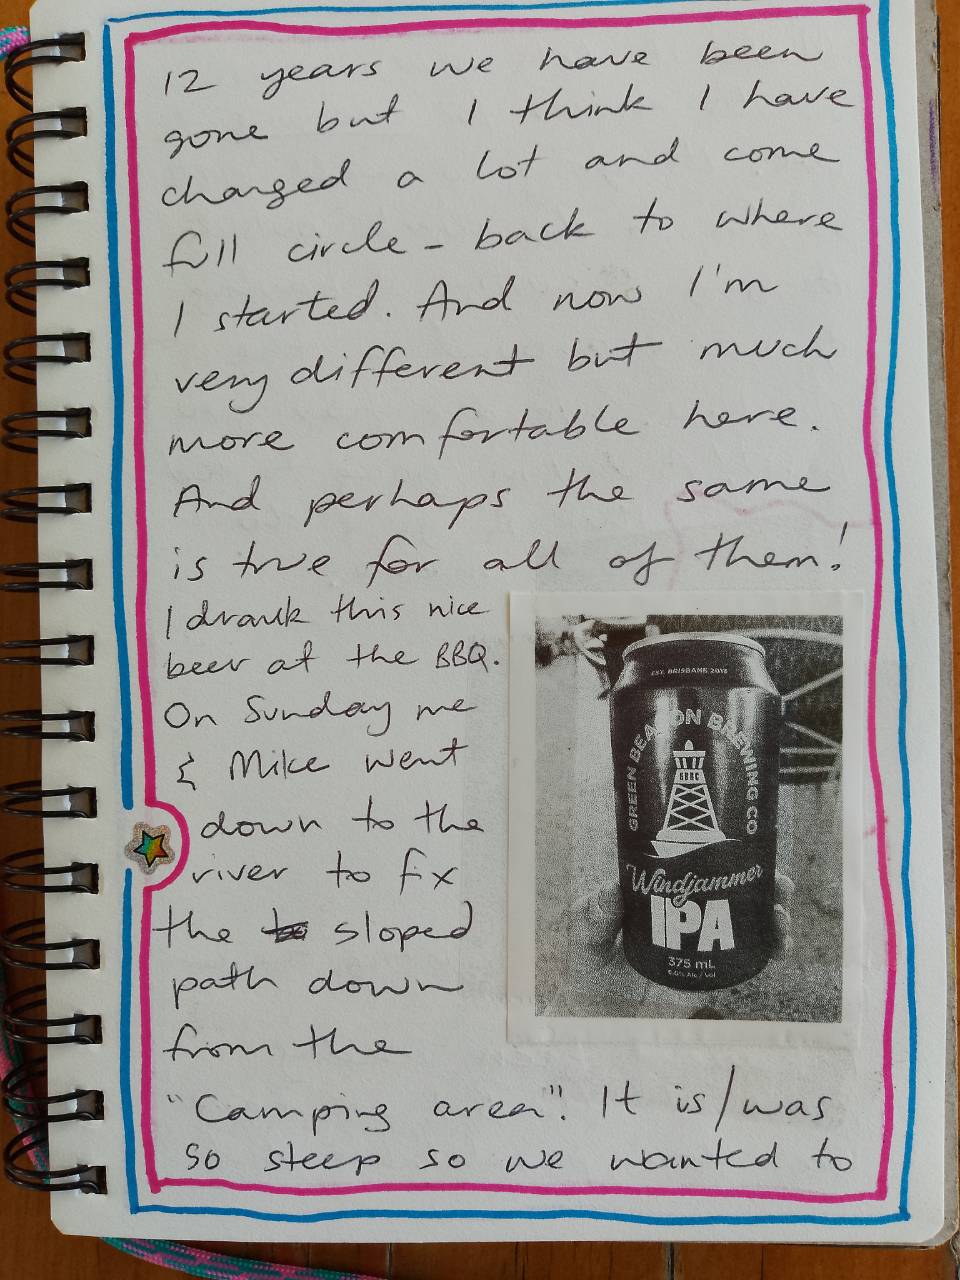 12 years we have been
gone but I think I have
changed a lot and come
full circle - back to where
I started. And now I'm
very different but much
more comfortable here.
And perhaps the same
is true for all of them!
I drank this nice
beer at the BBQ.
On Sunday me
& Mike went
down to the
river to fix
the sloped
path down
from the
"Camping area". It is/was
so steep so we wanted to
EST. BRISBANE 2013
GREEN BEACON BREWING CO
GBBC
Windjammer
IPA
375 mL
6.0% Alc / Vol